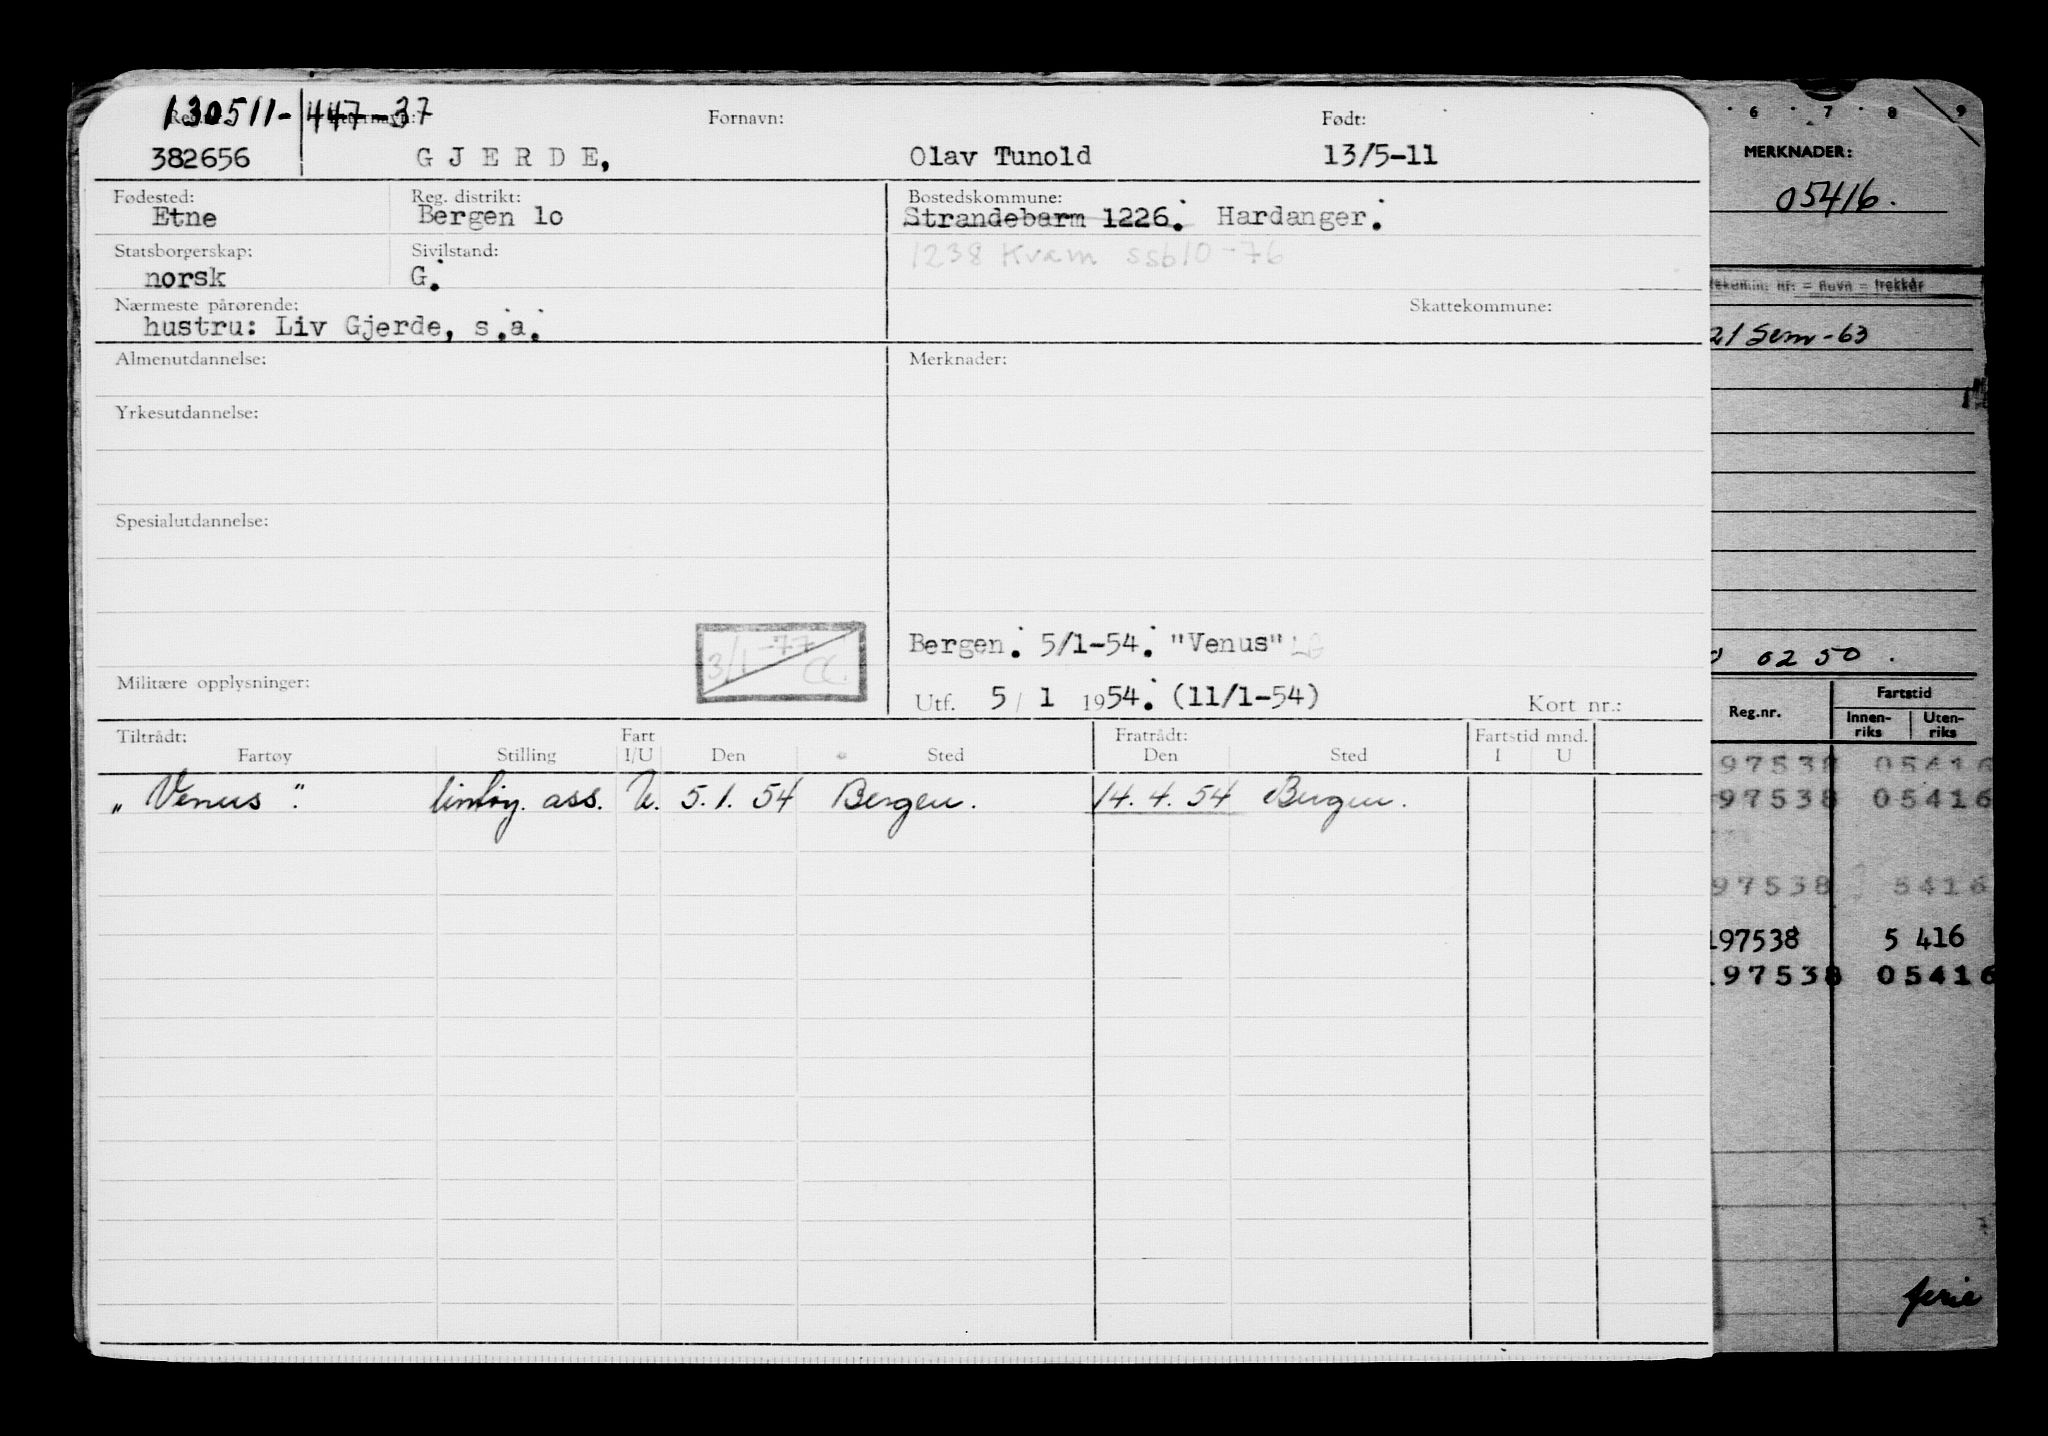 130511-447-37
Reg. Etternavn: Fornavn: Født:
382656 GJERDE, Olav Tunold 13/5-11
Fødested: Reg. distrikt: Bostedskommune:
Etne Bergen 1o Strandebarm 1226. Hardanger.
Statsborgerskap: Sivilstand: 1238 Kvam ssb10-76
norsk G.
Nærmeste pårørende: Skattekommune:
hustru: Liv Gjerde, s.a.
Almenutdannelse: Merknader:
Yrkesutdannelse:
Spesialutdannelse:
Bergen. 5/1-54. "Venus"
3/1-77 CC.
Militære opplysninger: Utf. 5/1 1954. (11/1-54) Kort nr.:
Tiltrådt: Fart Fratrådt: Fartstid mnd.
Fartøy Stilling I/U Den Sted Den Sted I U
„Venus". ass. U. 5.1.54 Bergen. 14.4.54 Bergen.
6 7 8 9
MERKNADER:
05416.
nr. = navn = trekkår
21 Sem-63
0250.
Reg.nr. Fartstid
Innen-riks Uten-riks
97538 05416
97538 05416
97538 5416
197538 5 416
197538 05416
ferie